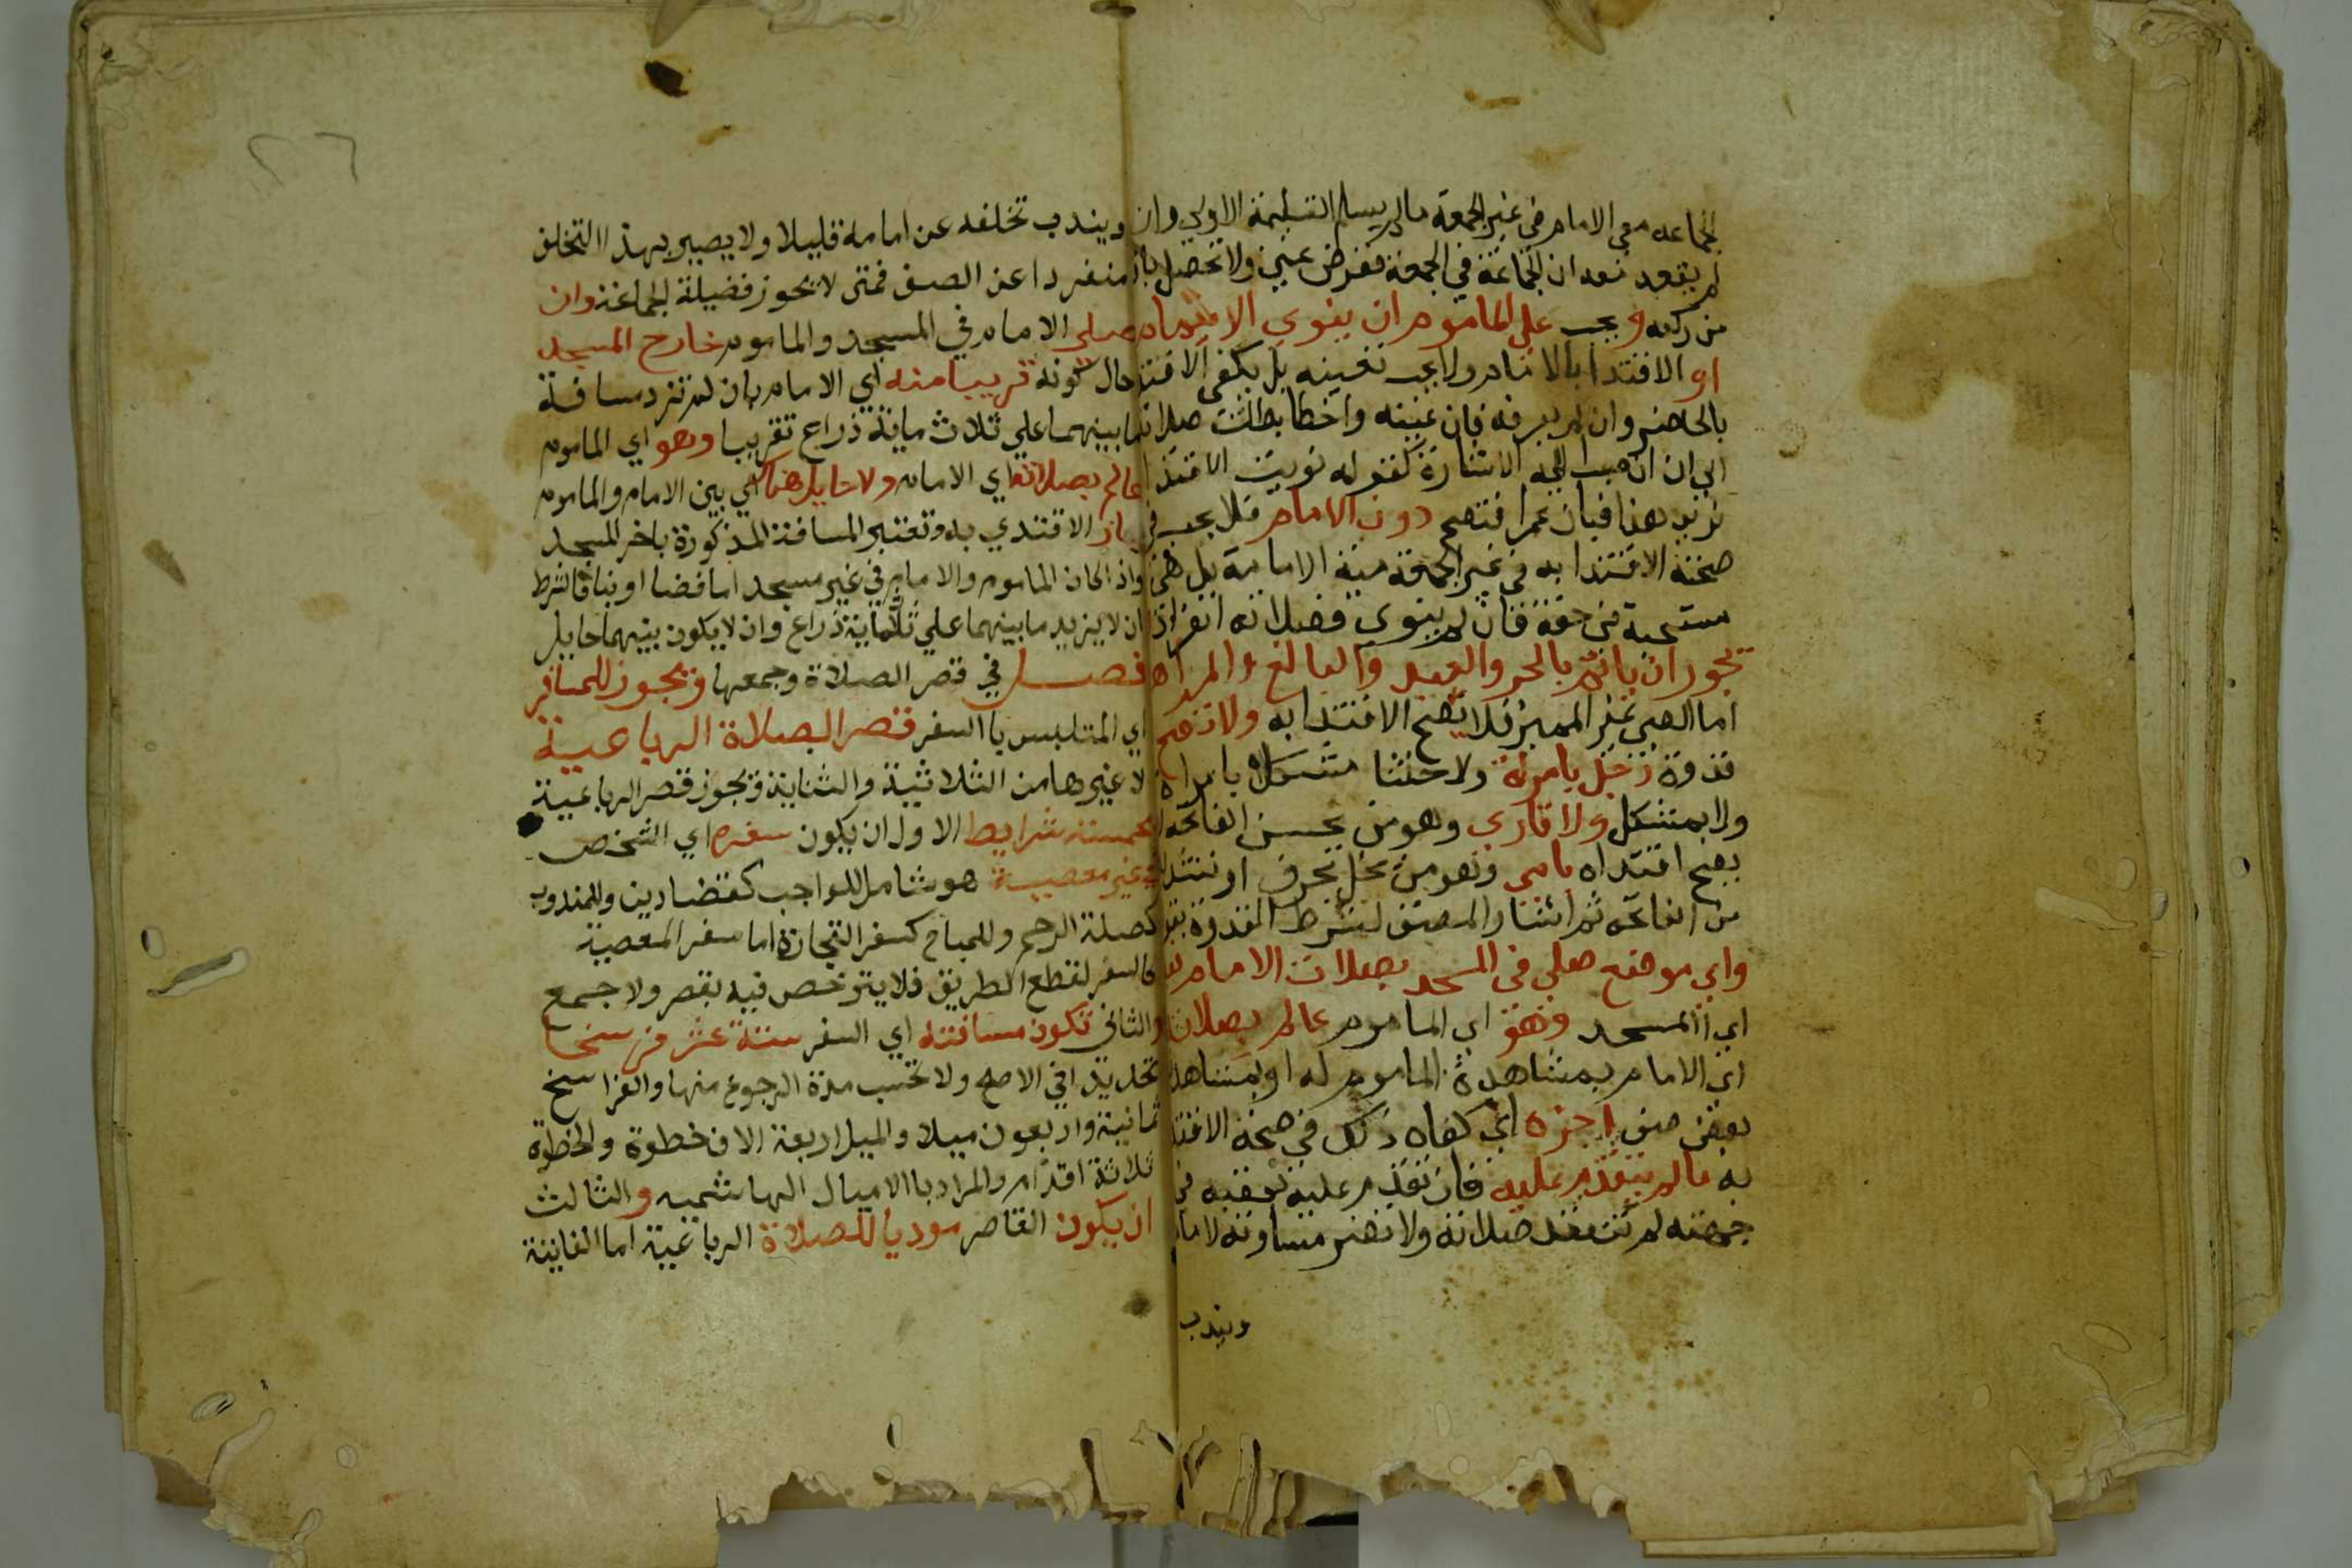 الجماعه مع الامام في غير الجمعة مالم يسلم التسليمة الاولي وان
لم يقعد معه اما الجماعة في الجمعة ففرض عين ولا تحصل باقل
من ركعه ويجب علي الماموم ان ينوي الايتمام
او الاقتدا بالامام ولا يجب تعيينه بل يكفي الاقتدا
بالحاضر وان لم يعرفه فان عينه واخطا بطلت صلاته
الي ان انضمت اليه الاشارة كقوله نويت الاقتدا
بزيد هذا فبان عمرا فتصح دون الامام فلا يجب في
صحة الاقتدا به في غير الجمعة نية الامامة بل هي
مستحبة في حقه فان لم ينوي فصلاته افرادا
يجوز ان ياتم بالحر والعبد والبالغ والمراهق
اما الصبي غير المميز فلا يصح الاقتدا به ولا تصح
قدوة رجل بامرئة ولا خنثا مشكل بامراة
ولا بمشكل ولا قاري وهو من يحسن الفاتحه
يصح اقتداه بامي وهو من يخل بحرف او تشديدة
من الفاتحه ثم اشار المصنف لشرط القدوة بقوله
واي موضع صلي في المسجد بصلات الامام فيه
اي المسجد وهو اي الماموم عالم بصلاته
اي الامام بمشاهدة الماموم له او بمشاهدة
بعض صف اجزه اي كفاه ذلك في صحة الاقتدا
به مالم يتقدم عليه فان تقدم عليه بعقبه في
جهته لم تنعقد صلاته ولا تضر مساوته لامامه
ويندب
٢٦
ويندب تخلفه عن امامه قليلا ولا يصير بهذا التخلف
منفردا عن الصف فمتى لا يحوز فضيلة الجماعة وان
صلي الامام في المسجد والماموم خارج المسجد
حال كونه قريبا منه اي الامام بان لم تزد مسافة
مابينهما علي ثلاث ماية ذراع تقريبا وهو اي الماموم
عالم بصلاته اي الامام ولا حايل هناك اي بين الامام والماموم
جاز الاقتدي به وتعتبر المسافة المذكورة باخر المسجد
واذا كان الماموم والامام في غير مسجد اما فضا او بنا فالشرط
ان لا يزيد ما بينهما علي ثلثماية ذراع وان لا يكون بينهما حايل
فصل في قصر الصلاة وجمعها ويجوز للمسافر
اي المتلبس با السفر قصر الصلاة الرباعية
لا غيرها من الثلاثية والثنايية ويجوز قصر الرباعية
بخمسة شرايط الاول ان يكون سفره اي الشخص
في غير معصية هو شامل للواجب كقضا دين وللمندوب
كصلة الرحم وللمباح كسفر التجارة اما سفر المعصية
كالسفر لقطع الطريق فلا يترخص فيه بقصر ولا جمع
والثاني تكون مسافته اي السفر ستة عشر فرسخا
تحديدا في الاصح ولا تحسب مدة الرجوع منها والفراسخ
ثمانية واربعون ميلا والميل اربعة الاف خطوة والخطوة
ثلاثة اقدام والمراد با الاميال الهاشميه والثالث
ان يكون القاصر موديا للصلاة الرباعية اما الفايتة